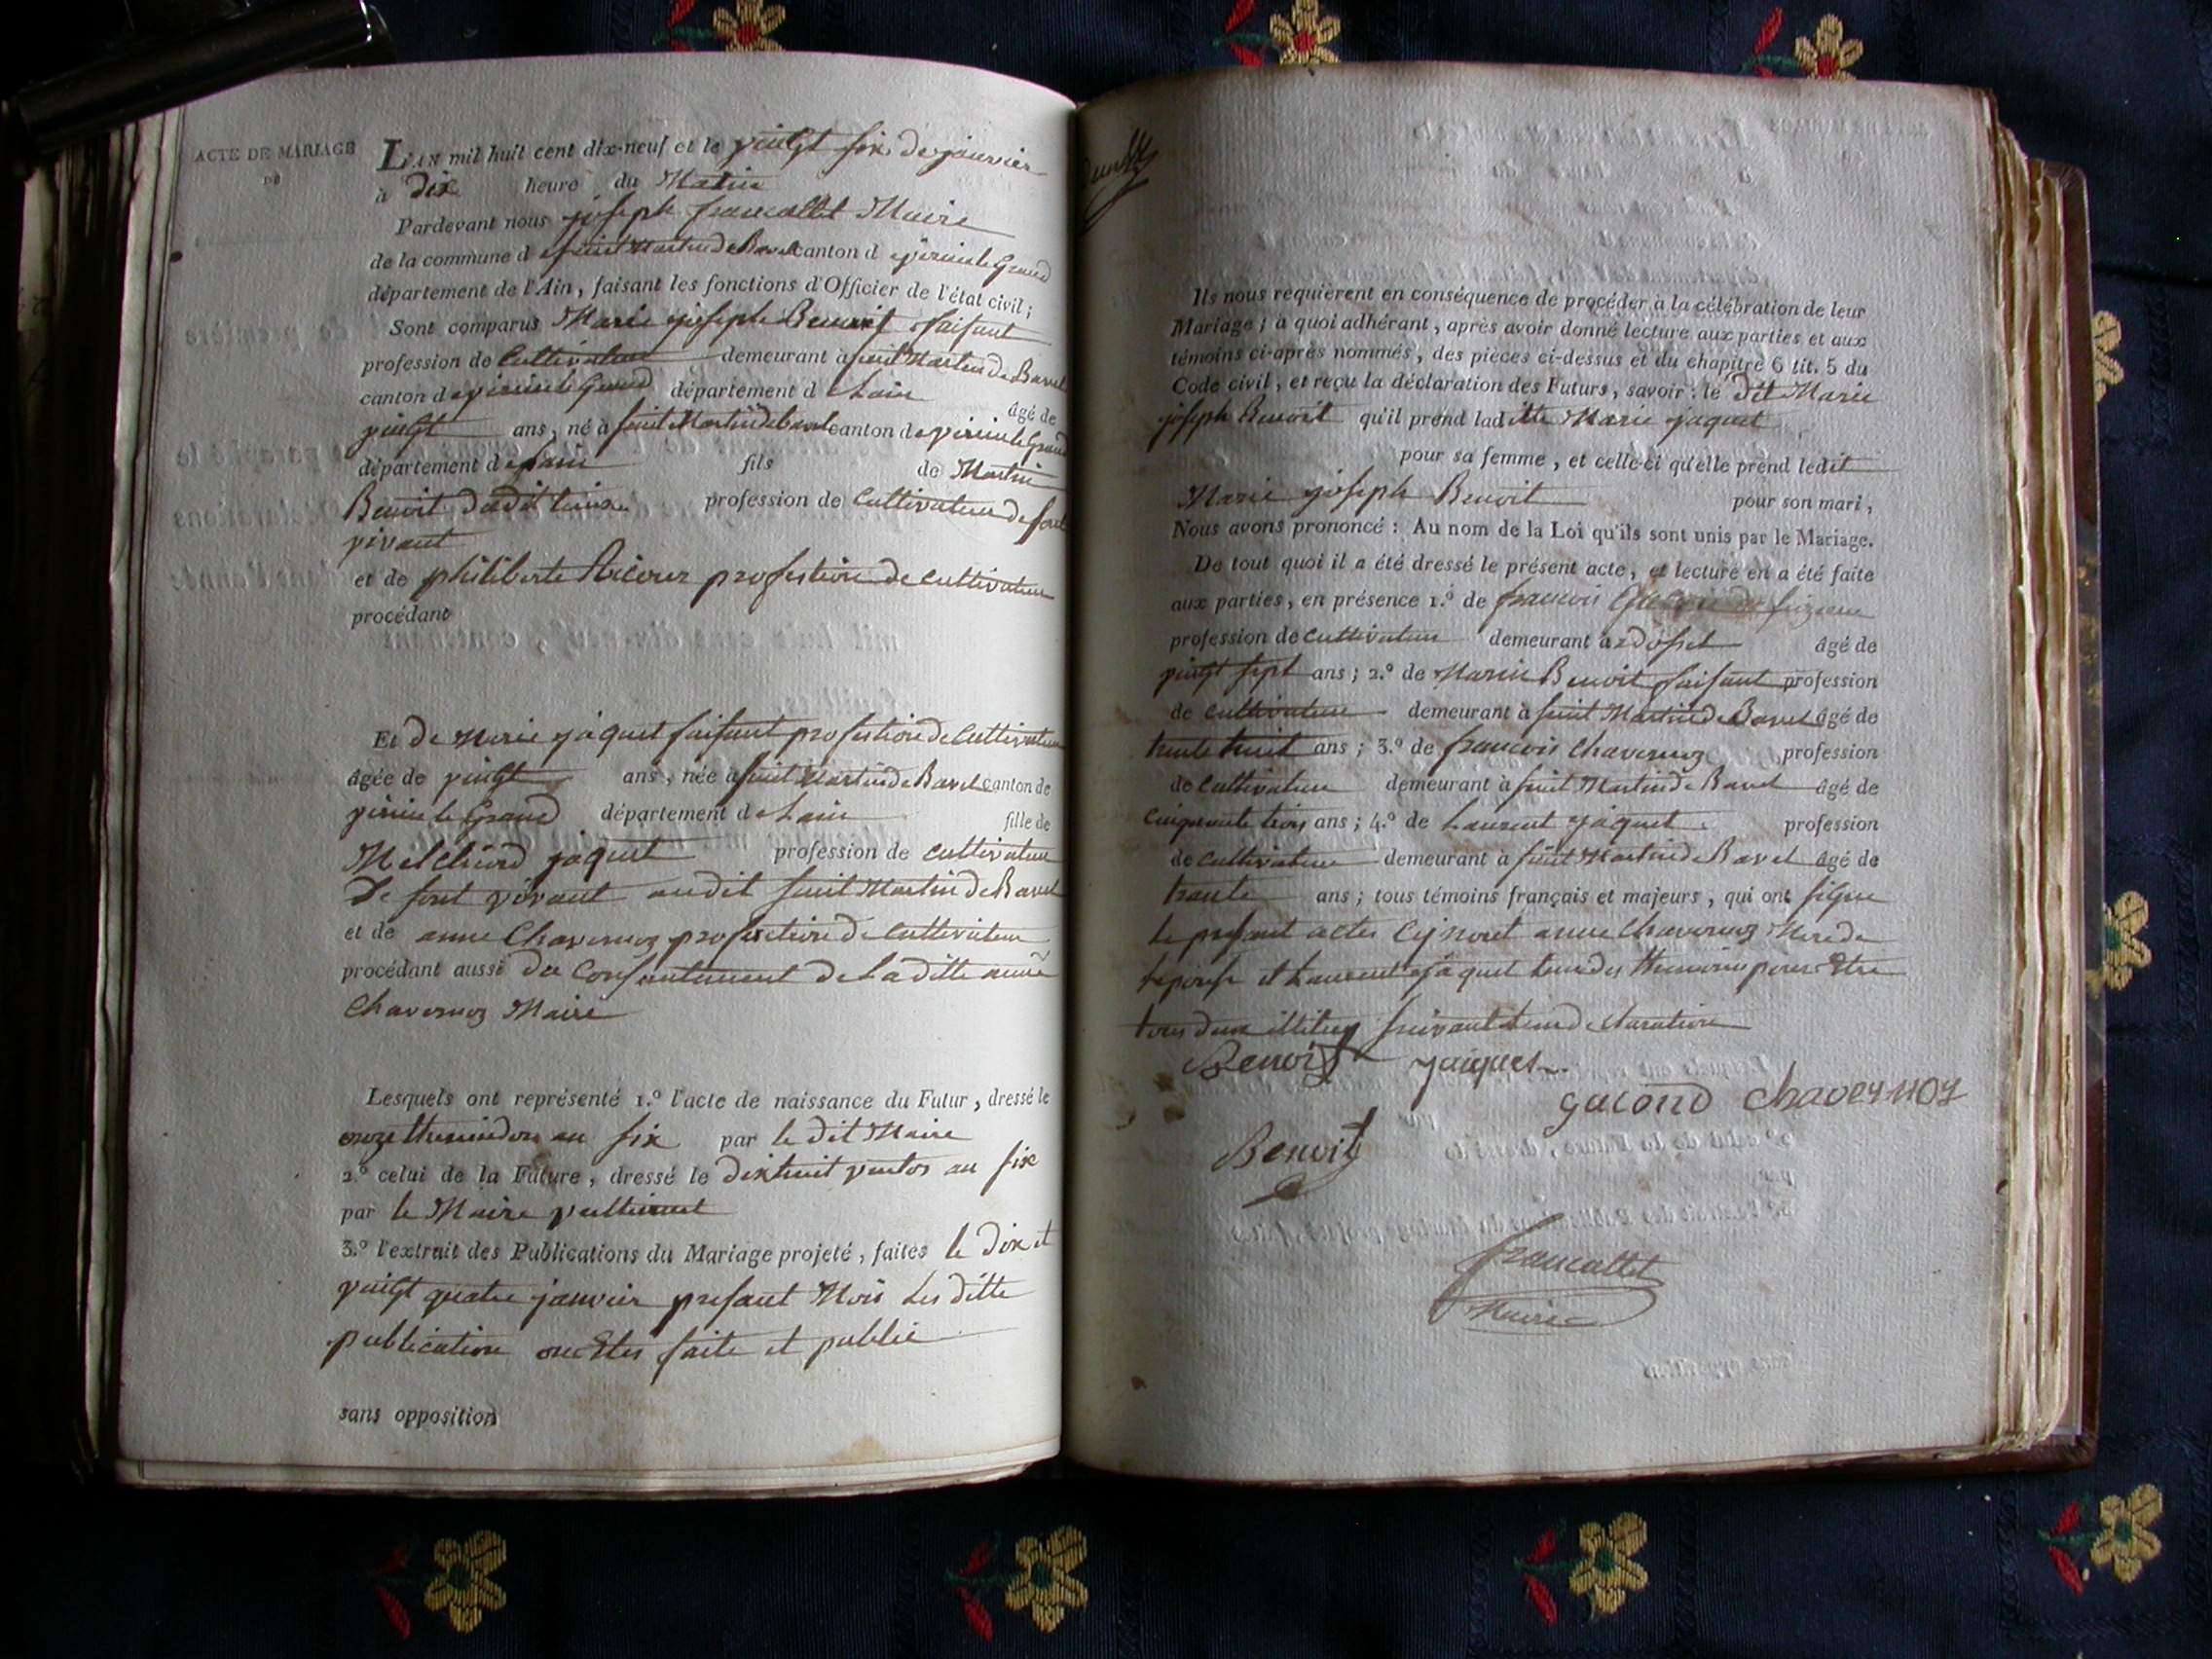 ACTE DE MARIAGE
DE
L'AN mil huit cent dix-neuf et le vingt six de janvier
à dix heure du Matin
Pardevant nous joseph francallet Maire
de la commune d saint Martin de Bavel canton d virieu le Grand
département de l'Ain, faisant les fonctions d'Officier de l'état civil;
Sont comparus Marie joseph Benoit faisant
profession de Cultivateur demeurant à saint Martin de Bavel
canton de virieu le Grand département d Lain âgé de
vingt ans, né à saint Martin de bavel canton de virieu le Grand
département de Lain fils de Martin
Benoit profession de Cultivateur de sont
vivant
et de philiberte profession de cultivateur
procédant
Et de Marie jaquet faisant profestion de Cultivateur
âgée de vingt ans, née à saint Martin de Bavel canton de
virieu le Grand département de Lain fille de
Melchiord jaquet profession de cultivateur
De sont vivant audit saint Martin de Bavel
et de anne Chavernoz profection de Cultivateur
procédant aussi du Consentement de La ditte anne
Chavernoz Maire
Lesquels ont représenté 1.º l'acte de naissance du Futur, dressé le
onze an six par le dit Maire
2.º celui de la Future, dressé le dixhuit ventos an six
par le Maire
3.º l'extrait des Publications du Mariage projeté, faites le dix et
vingt quatre janvier presant Mois Les ditte
publication faite et publié
sans opposition
Ils nous requièrent en conséquence de procéder à la célébration de leur
Mariage; à quoi adhérant, après avoir donné lecture aux parties et aux
témoins ci-après nommés, des pièces ci-dessus et du chapitre 6 tit. 5 du
Code civil, et reçu la déclaration des Futurs, savoir: le dit Marie
joseph Benoit qu'il prend laditte Marie jaquet
pour sa femme, et celle-ci qu'elle prend ledit
Marie joseph Benoit pour son mari,
Nous avons prononcé: Au nom de la Loi qu'ils sont unis par le Mariage.
De tout quoi il a été dressé le présent acte, et lecture en a été faite
aux parties, en présence 1.º de francois
profession de cultivateur demeurant à âgé de
vingt sept ans; 2.º de Benoit faisant profession
de cultivateur demeurant à saint Martin de Bavel âgé de
trente huit ans; 3.º de francois Chavernoz profession
de cultivateur demeurant à saint Martin de Bavel âgé de
cinquante trois ans; 4.º de Laurent jaquet profession
de cultivateur demeurant à saint Martin de Bavel âgé de
trante ans; tous témoins français et majeurs, qui ont signe
Le present actes anne Chavernoz Mere de
Leponse et Laurent jaquet Lun des pour Etre
tous deux suivant Leur declaration
Benoit jaiques
gacond Chavernoz
Benoit
francallet
Maire